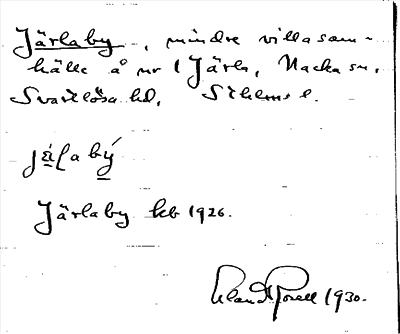 Järlaby, mindre villasam-
hälle å nr 1 Järla, Nacka sn,
Svartlösa hd, Sthlms l.
jä̀labý
Järlaby kb 1926.
1930.